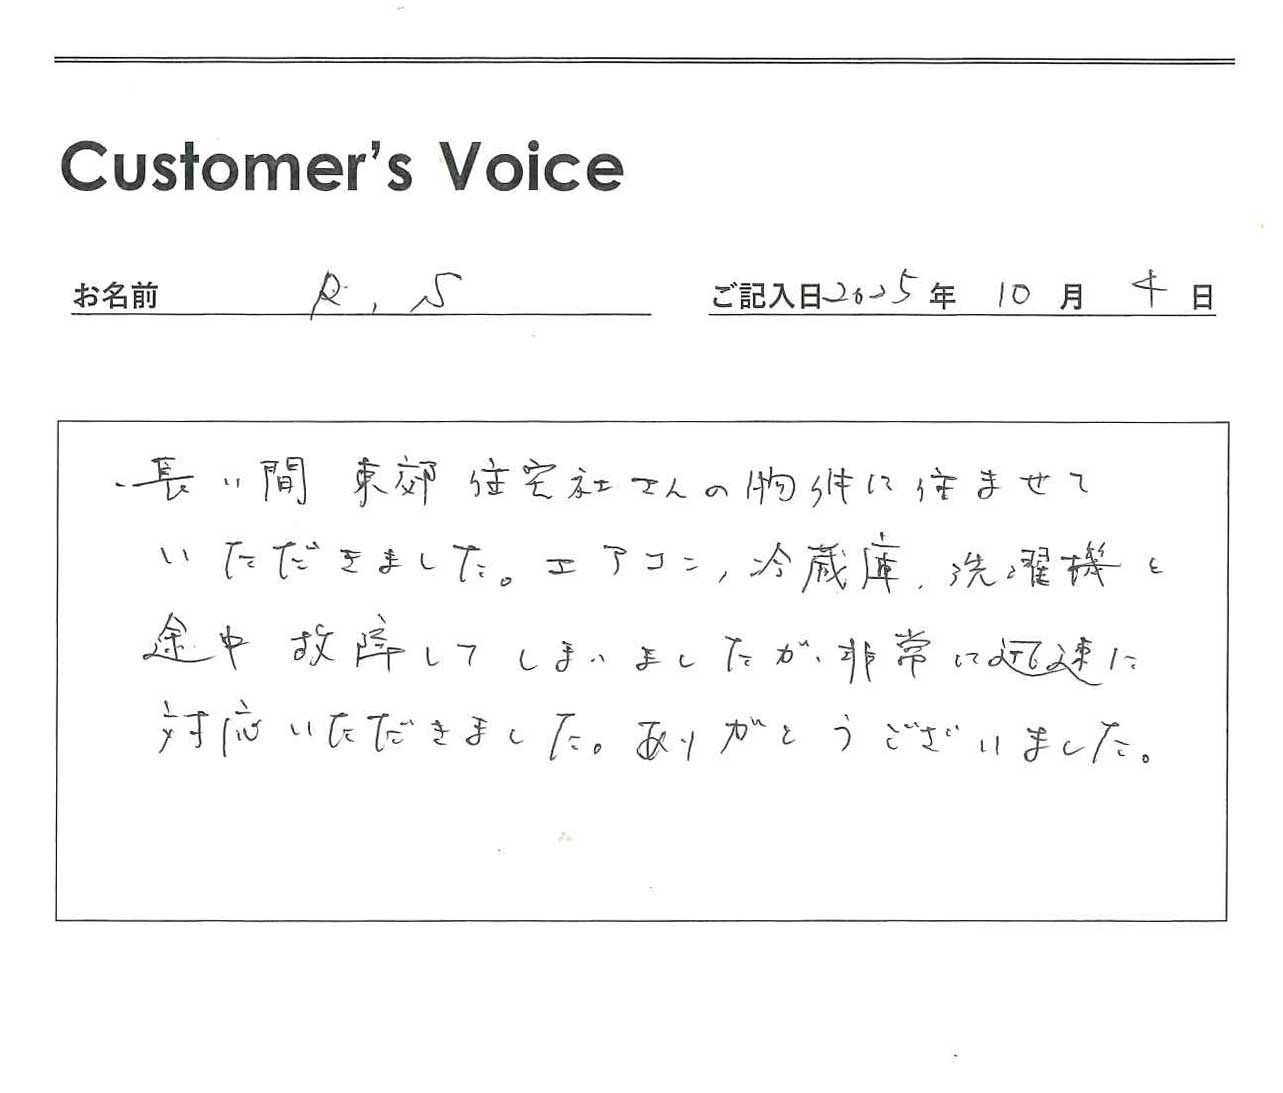 Customer's Voice
お名前 R.S ご記入日2025年 10月 4日
長い間 東郊住宅社さんの物件に住ませて
いただきました。エアコン,冷蔵庫,洗濯機と
途中故障してしまいましたが、非常に迅速に
対応いただきました。ありがとうございました。